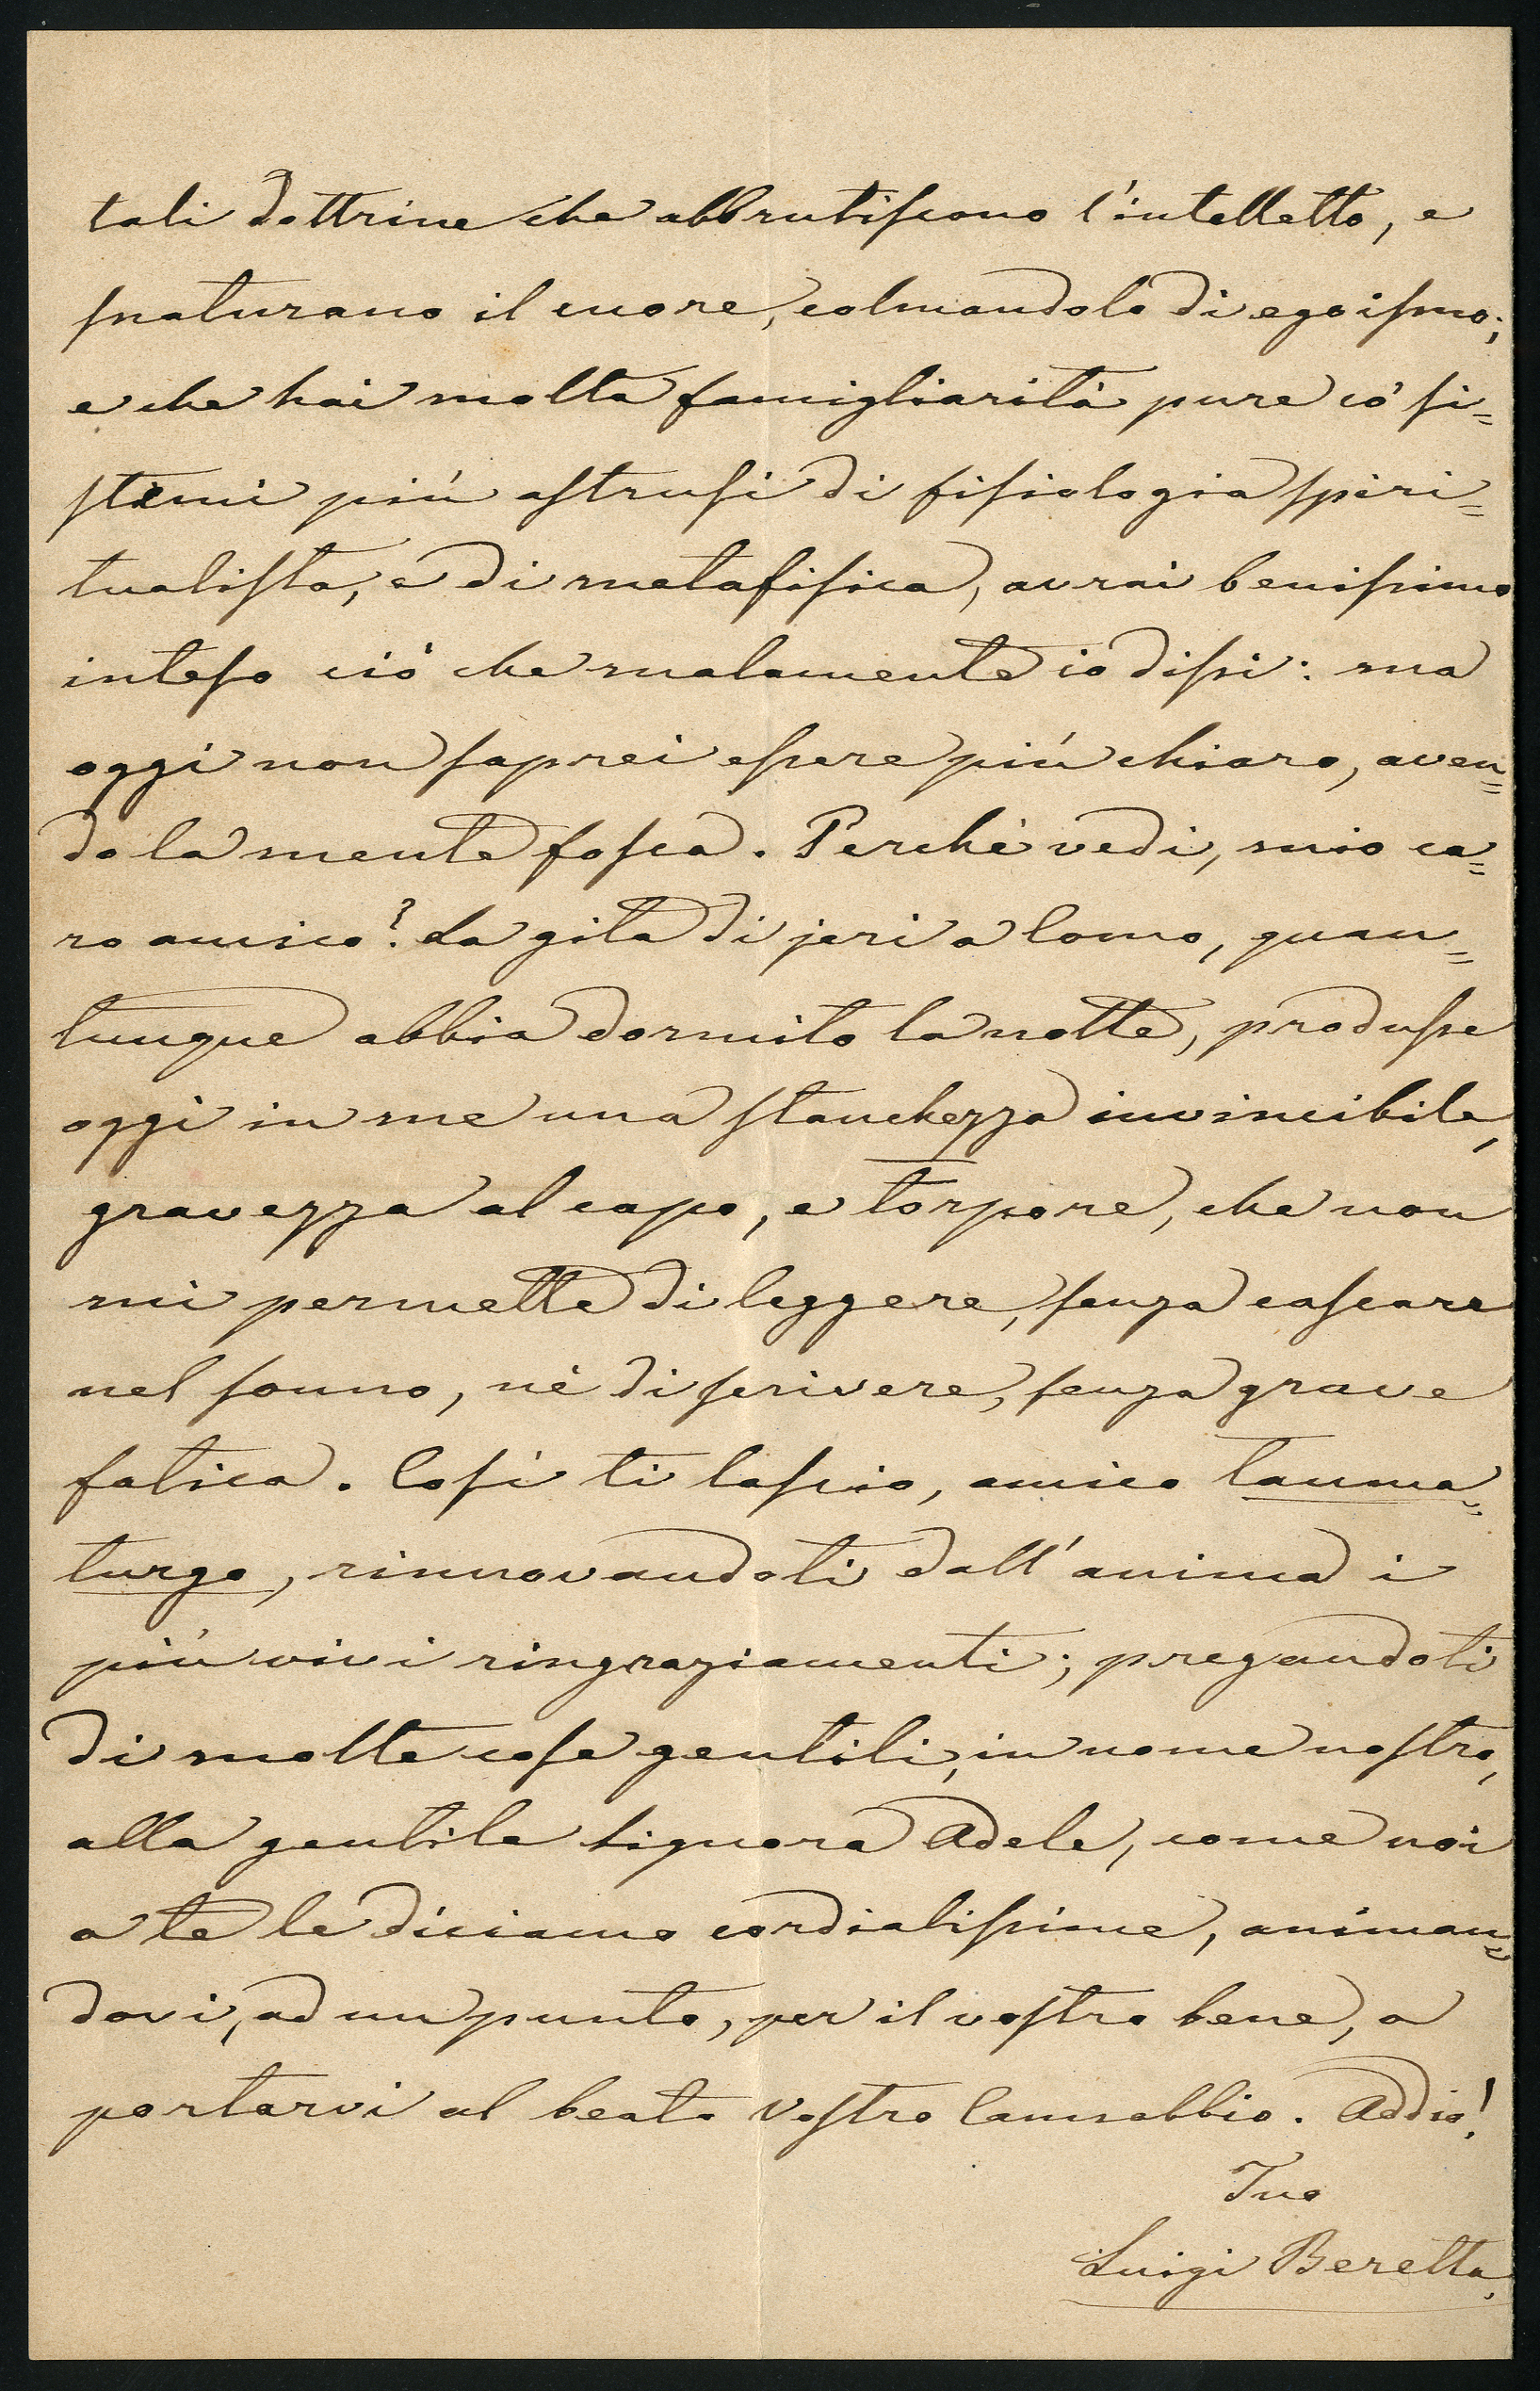 tali dottrine che abbrutiscono l'intelletto, e
snaturano il cuore, colmandolo di egoismo;
e che hai molta famigliarità pure co' si=
stemi più astrusi di fisiologia spiri=
tualista, e di metafisica, avrai benissimo
inteso ciò che malamente io dissi: ma
oggi non saprei essere più chiaro, aven=
do la mente fosca. Perchè vedi, mio ca=
ro amico? La gita di jeri a Como, quan=
tunque abbia dormito la notte, produsse
oggi in me una stanchezza invincibile,
gravezza al capo, e torpore, che non
mi permette di leggere, senza cascare
nel sonno, nè di scrivere, senza grave
fatica. Così ti lascio, amico tauma=
turgo, rinnovandoti dall'anima i
più vivi ringraziamenti; pregandoti
di molte cose gentili, in nome nostro,
alla gentile signora Adele, come noi
a te le diciamo cordialissime, animan=
dovi, ad un punto, per il vostro bene, a
portarvi al beato vostro Camnabbio. Addio!
Tuo
Luigi Beretta.